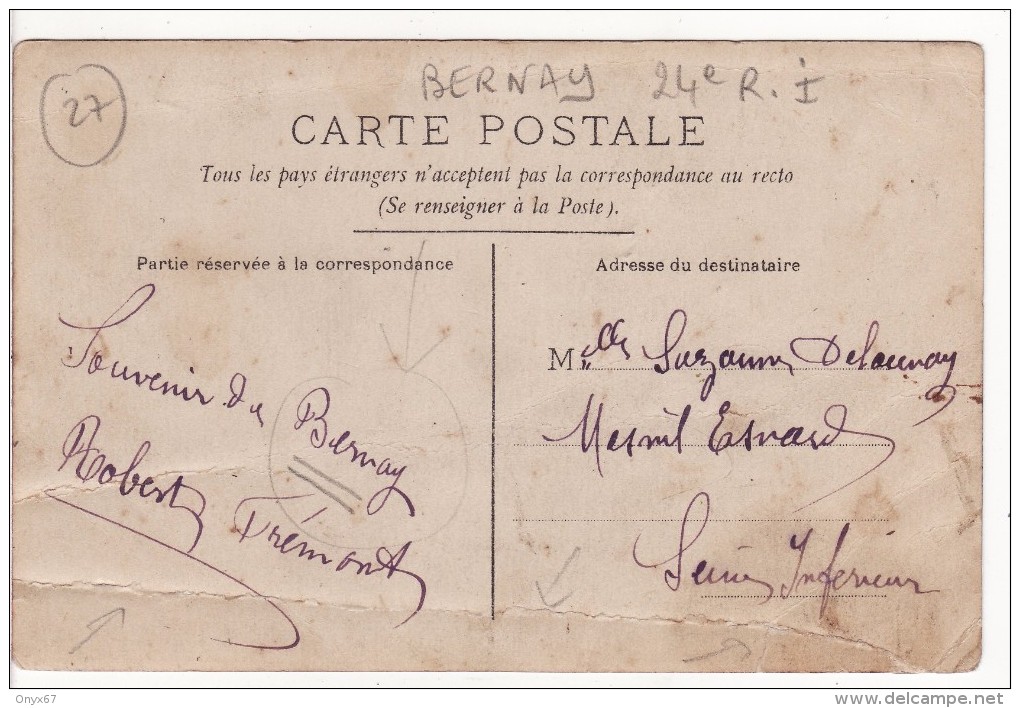 27
BERNAY 24e R. I
CARTE POSTALE
Tous les pays étrangers n'acceptent pas la correspondance au recto
(Se renseigner à la Poste).
Partie réservée à la correspondance
Souvenir de
Bernay
Robert Frémont
Adresse du destinataire
Melle Suzanne Delaunay
Mesnil Esnard
Seine Inferieur
Onyx67
delcampe.net